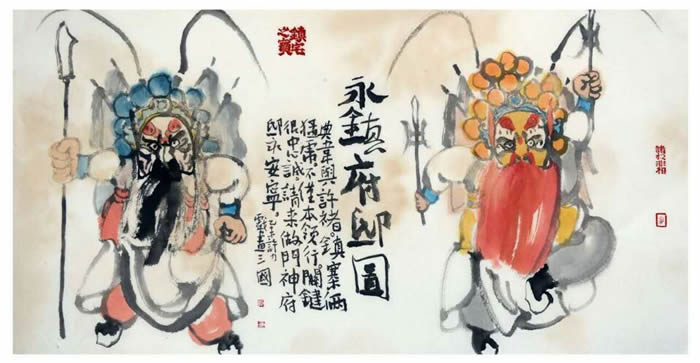 鎮宅
之寶
永鎮府邸圖
典韋與許褚。鎮寨兩
猛虎。不僅本領行關鍵
很忠誠。請来做門神府
邸永安寧。
三國